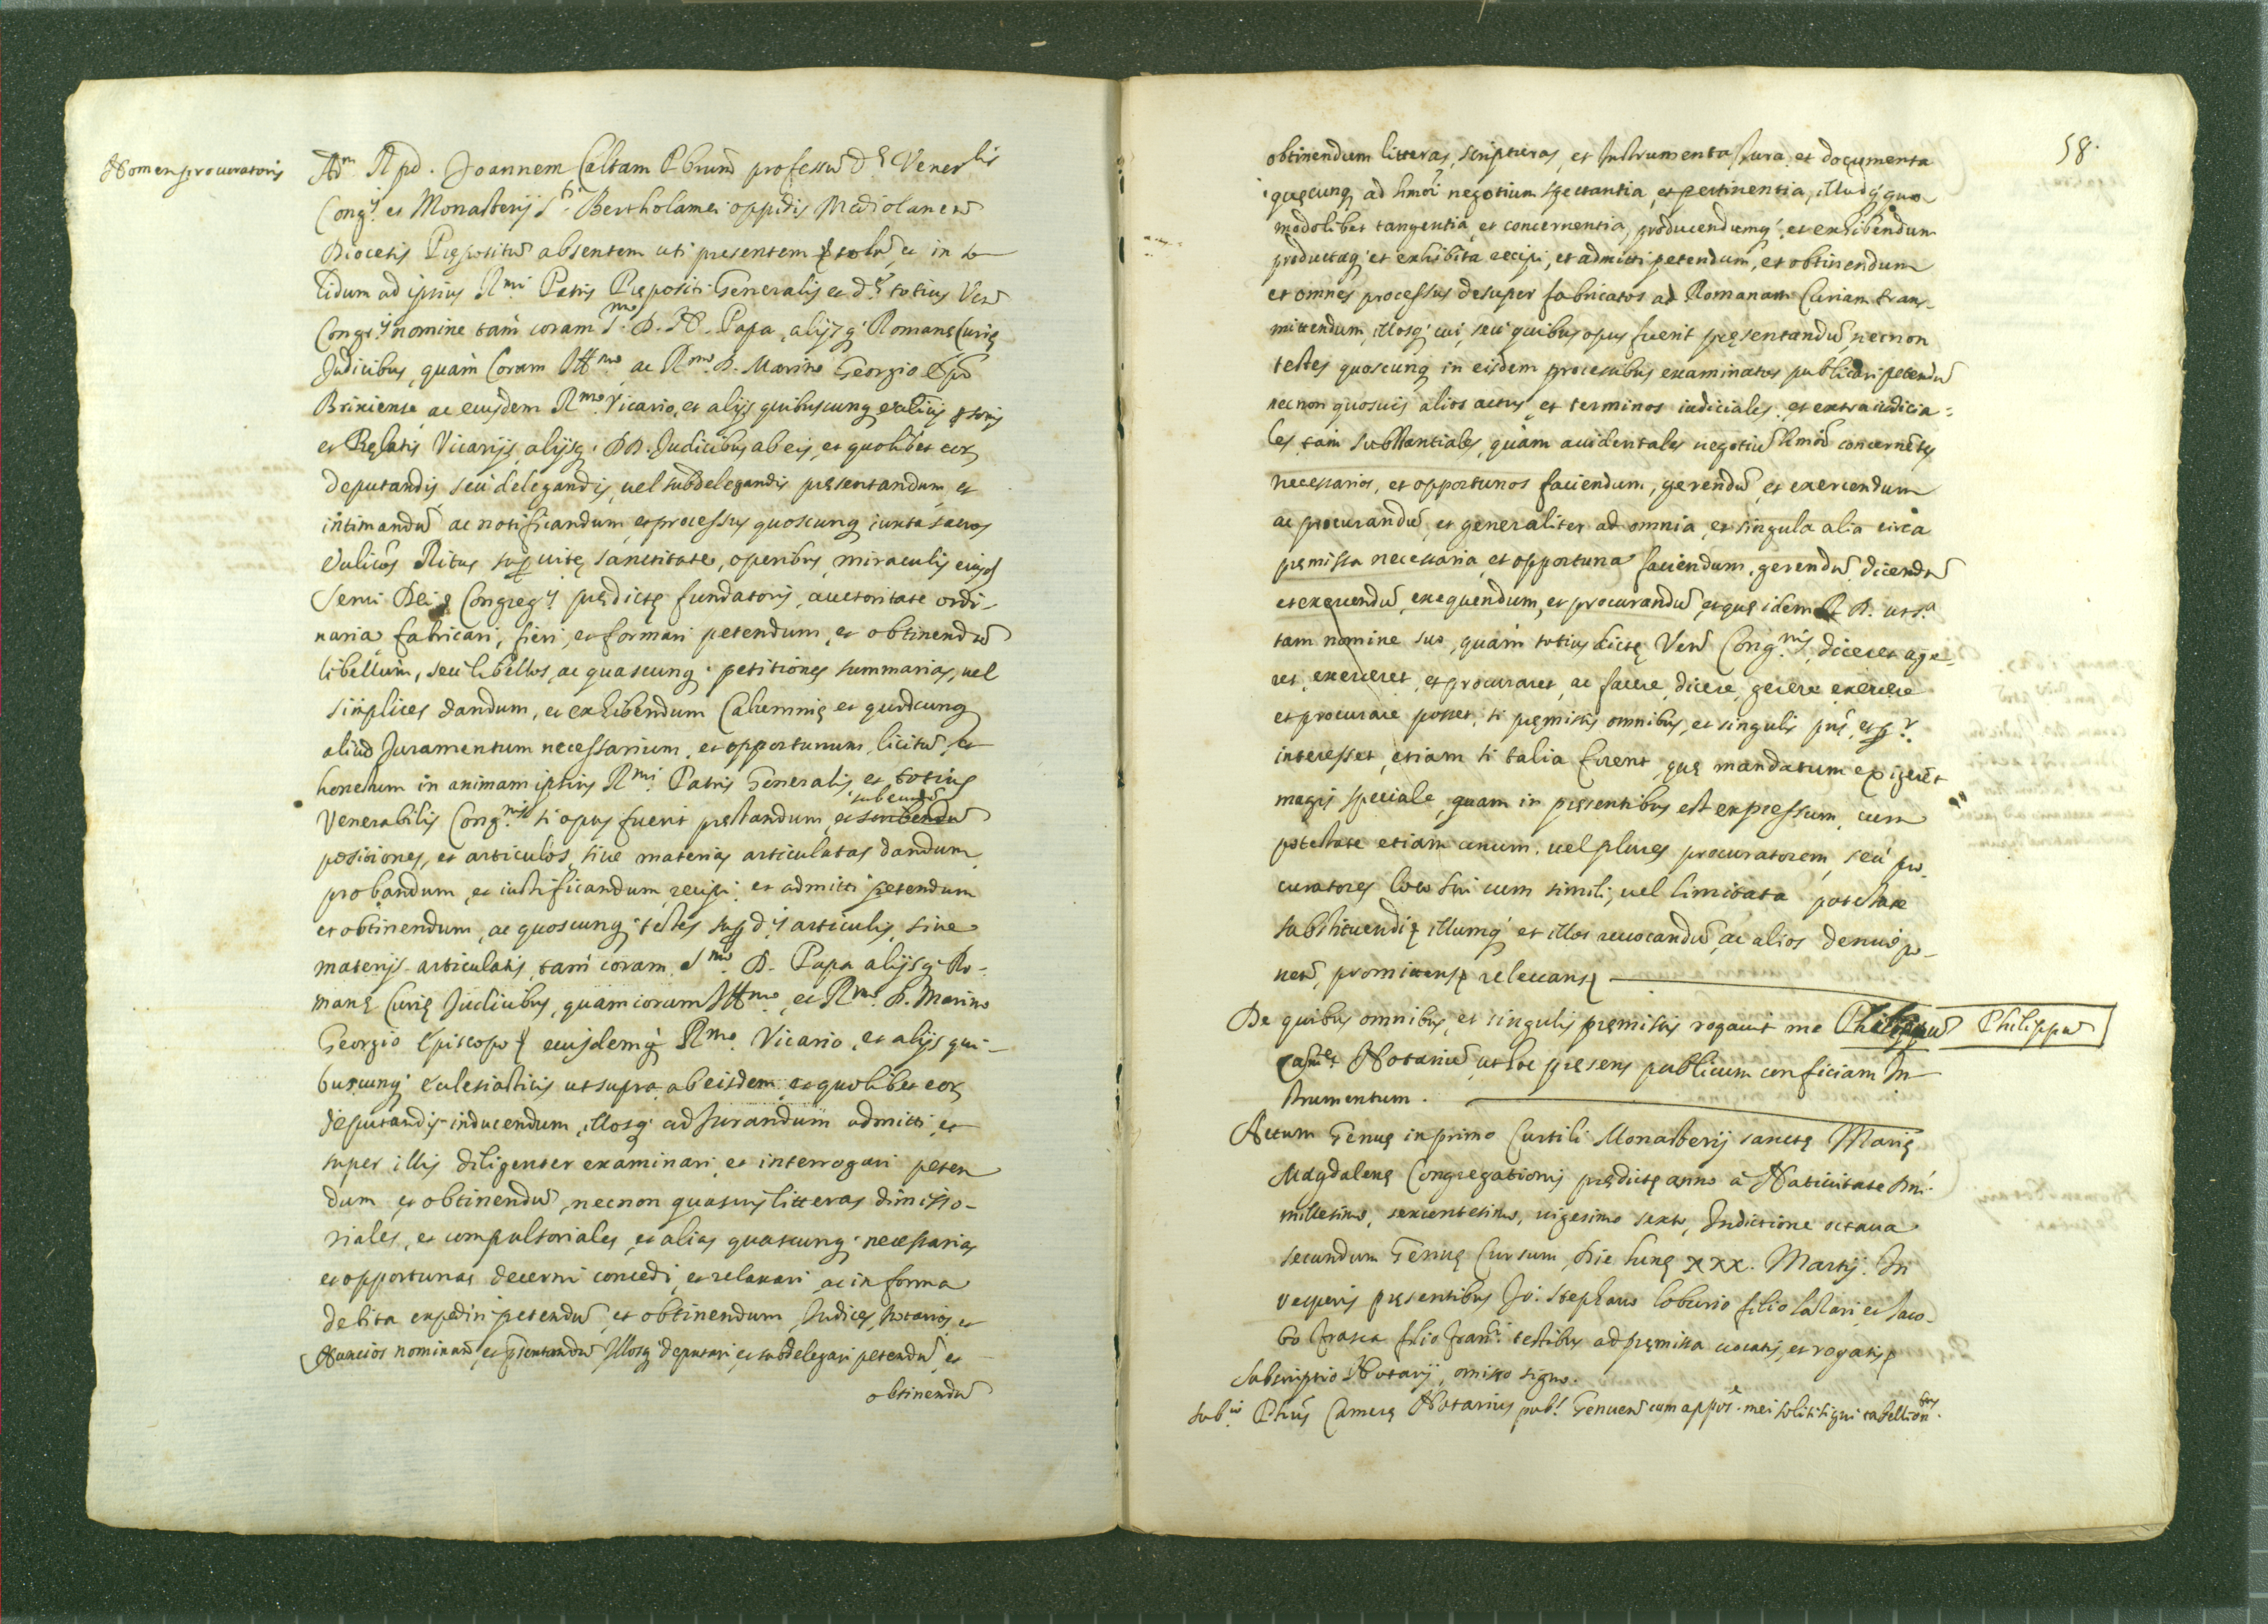 Nomen procuratoris
Adm. R. pd. Joannem Caltam Pbrum professu d.ę Vener.lis
Cong.is et Monasterij S.ti Bertholamei oppidis Mediolanen
Diocesis Prępositu absentem uti presentem et in so
lidum ad ipsius R.mi Patris Prępositi Generalis et d.ę totius Ven
Cong.is nomine tam coram S.mo D. N. Papa, alijsq Romanę Curię
Judicibus, quàm Coram Ill.mo ac R.mo D. Marino Georgio Epō
Brixiense ac eiusdem R.mo Vicario, et alijs quibuscunq
et Prelatis Vicarijs, alijsq DD. Judicibus ab eis, et quolibet eor
deputandis seù delegandis, uel subdelegandis presentandum et
intimandū ac notificandum, et processus quoscunq iuxta sacros
Ritus sup uitę, sanctitate, operibus, miraculis eiusd
Serui Dei, Congreg.is prędictę fundatoris, auctoritate ordi-
naria fabricari, fieri, et formari petendum, et obtinendū
libellum, seù libellos, ac quascunq petitiones summarias, uel
simplices dandum, et exhibendum Calumnię et quodcunq
aliud Juramentum necessarium, et opportunum, licitū, et
honestum in animam ipsius R.mi Patris Generalis et totius
subeundū
Venerabilis Cong.nis si opus fuerit pręstandum, et scribendū
positiones, et articulos, siue materias articulatas dandum
probandum, et iustificandum, recipi, et admitti petendum
et obtinendum, ac quoscunq testes sup d.is articulis, siue
materijs articulatis, tam coram S.mo D. Papa alijsq Ro-
manę Curię Judicibus, quàm coram Ill.mo, et R.mo D. Marino
Georgio Episcopo eiusdemq R.mo Vicario, et alijs qui-
buscunq Ecclesiasticis ut supra ab eisdem, et quolibet eor
deputandis inducendum, illosq ad Jurandum admitti, et
super illis diligenter examinari, et interrogari peten
dum, et obtinendū, necnon quasuis litteras dimisso-
riales, et compulsoriales, et alias quascunq necessarias
et opportunas decerni concedi, et relaxari, ac in forma
debita expediri petendū, et obtinendum, Judices, Notarios, et
Nuncios nominand, et pręsentandū Illosq deputari, et subdelegari petendū, et
obtinendū
58.
obtinendum litteras, scripturas, et Instrumenta Jura, et documenta
quęcunq ad hmōi negotium spectantia, et pertinentia, illudq quo
modolibet tangentia, et concernentia, producendumq, et exhibendum
productaq et exhibita recipi, et admitti petendum, et obtinendum
et omnes processus desuper fabricatos ad Romanam Curiam trans-
mittendum, illosq cui, seu quibus opus fuerit pręsentandū, necnon
testes quoscunq in eisdem processibus examinatos publicari petendū
necnon quosuis alios actus, et terminos iudiciales, et extraiudicia=
les, tàm substantiales, quàm accidentales negotiū hmōi concernētes
necessarios, et opportunos faciendum, gerendū, et exercendum
ac procurandū, et generaliter ad omnia, et singula alia circa
pręmissa necessaria, et opportuna faciendum, gerendū, dicendū
et exercendū, exequendum, et procurandū, et quę idem R. P. ut s.a
tam nomine suo, quàm totius dictę Ven Cong.nis, diceret age-
ret, exerceret, et procuraret, ac facere, dicere, gerere, exercere
et procurare posset, si pręmissis omnibus, et singulis pns, et
interesset, etiam si talia forent, quę mandatum exigerēt
magis speciale, quam in pręsentibus est expressum, cum
potestate etiam unum, uel plures procuratorem, seù pro
curatores loco sui cum simili, uel limitata potestate
substituendi, illumq et illos reuocandū, ac alios denuò po-
nend, promittens, releuans
De quibus omnibus, et singulis pręmissis rogauit me Philippū Philippū
Notariū, ut hoc pręsens publicum conficiam In
strumentum.
Actum Genuę in primo Curtili Monasterij sanctę Marię
Magdalenę Congregationis prędictę anno à Natiuitate Dni
millesimo, sexcentesimo, uigesimo sexto, Indictione octaua
secundum Genuę Cursum, Die lunę XXX. Martij. In
Vesperis pręsentibus Jo: Stephano loburio filio lasari, et Jaco-
bo filio Fran.ci testibus ad pręmissa uocatis, et rogatis
Subscriptio Notarij, omisso signo.
Sub.io Phūs Camerę Notarius pub.s Genuen cum appos.e mei soliti signi tabellion.tus